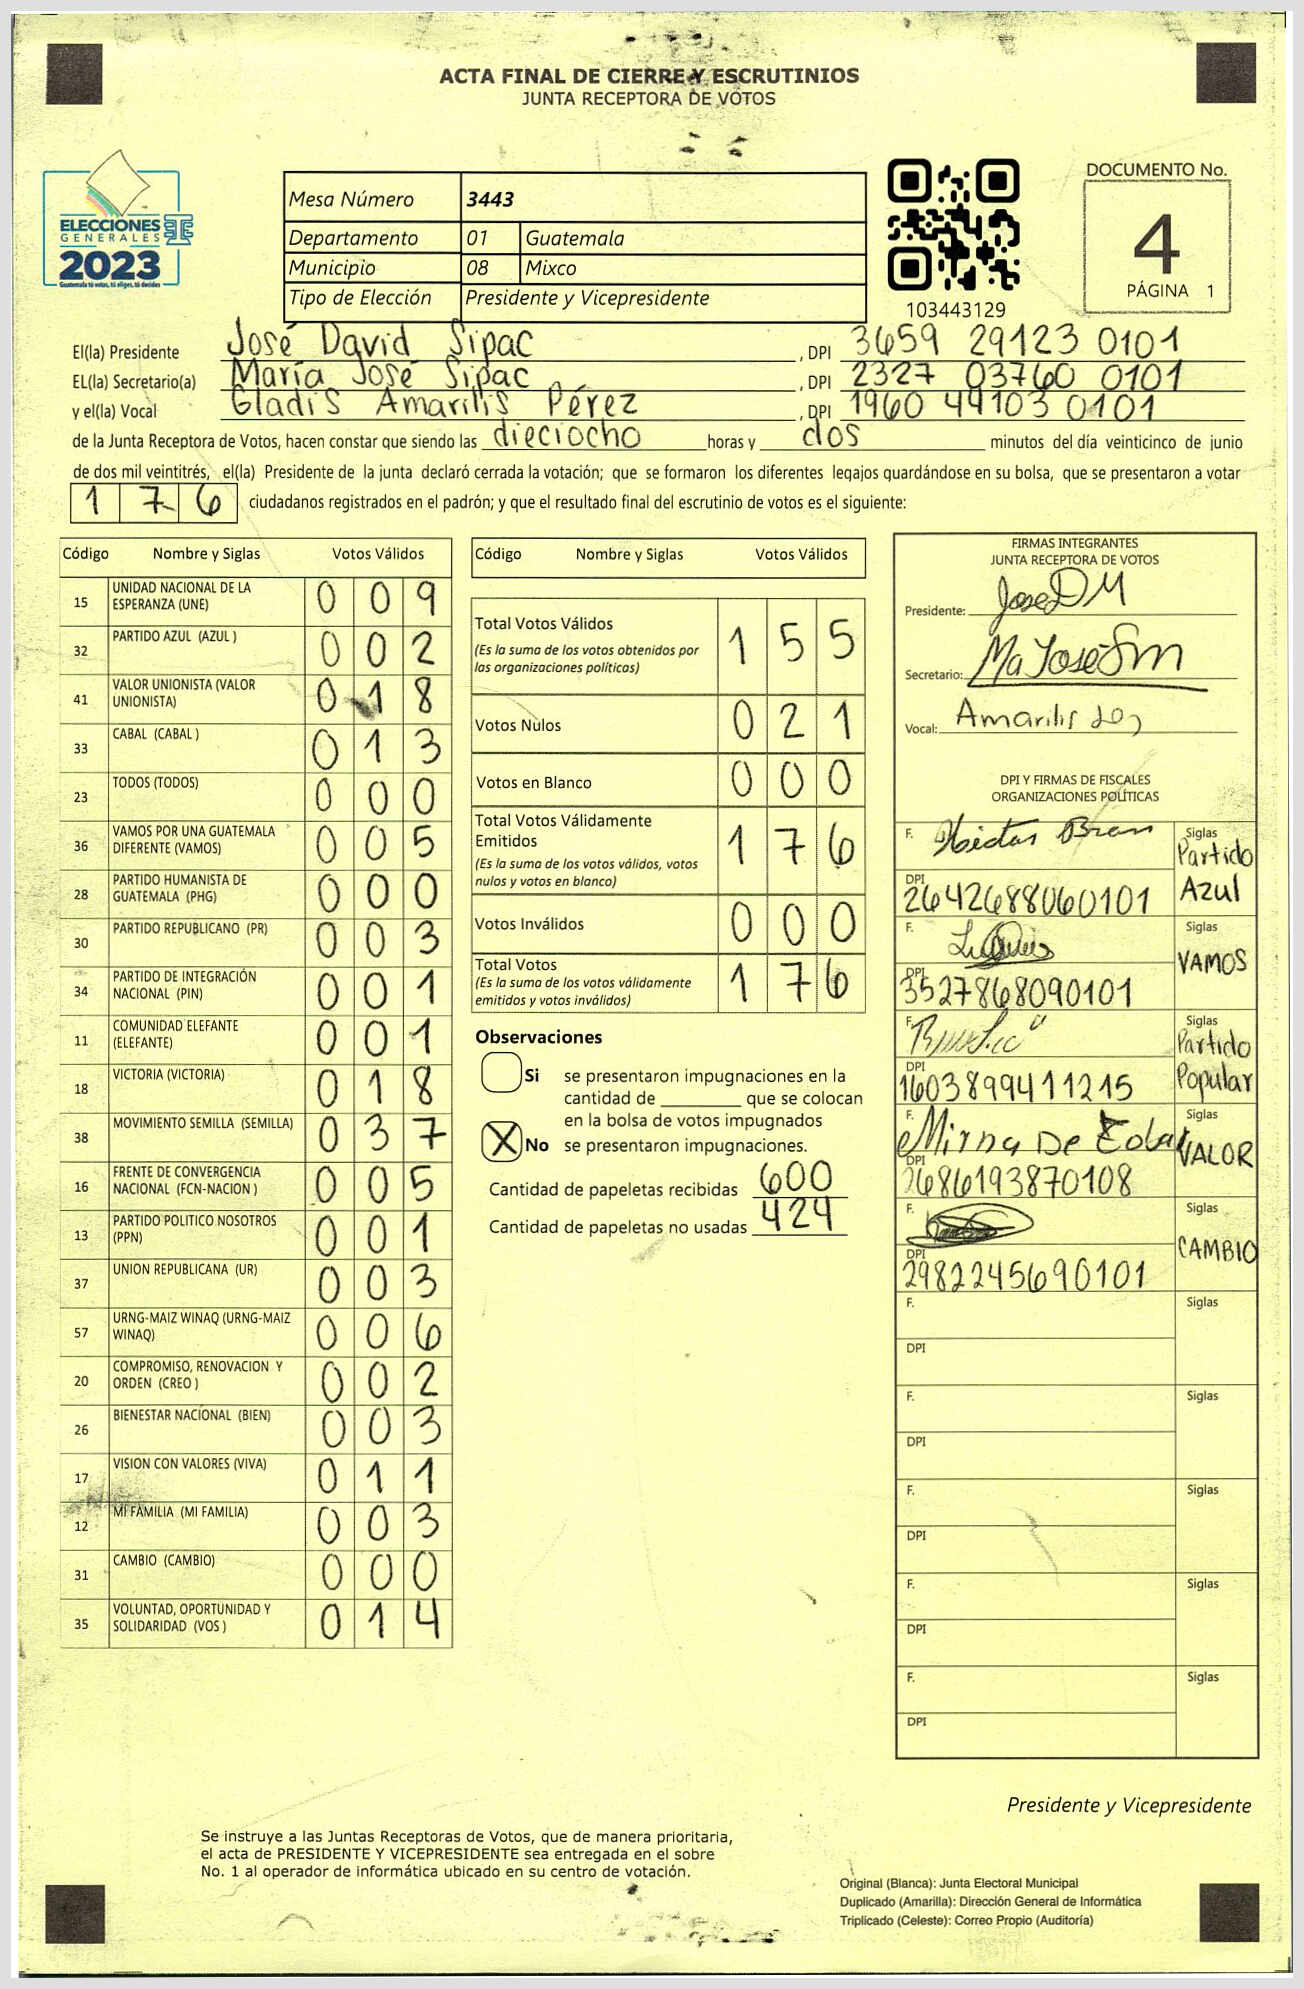 ACTA FINAL DE CIERRE Y ESCRUTINIOS
JUNTA RECEPTORA DE VOTOS
ELECCIONES
GENERALES
2023
Guatemala tú votas, tú eliges, tú decides
Mesa Número 3443
Departamento 01 Guatemala
Municipio 08 Mixco
Tipo de Elección Presidente y Vicepresidente
103443129
DOCUMENTO No.
4
PÁGINA 1
El(la) Presidente José David Sipac , DPI 3659 29123 0101
EL(la) Secretario(a) María José Sipac , DPI 2327 03760 0101
y el(la) Vocal Gladis Amarilis Pérez , DPI 1960 49103 0101
de la Junta Receptora de Votos, hacen constar que siendo las dieciocho horas y dos minutos del día veinticinco de junio
de dos mil veintitrés, el(la) Presidente de la junta declaró cerrada la votación; que se formaron los diferentes legajos guardándose en su bolsa, que se presentaron a votar
1 7 6 ciudadanos registrados en el padrón; y que el resultado final del escrutinio de votos es el siguiente:
Código Nombre y Siglas Votos Válidos
15 UNIDAD NACIONAL DE LA ESPERANZA (UNE) 0 0 9
32 PARTIDO AZUL (AZUL ) 0 0 2
41 VALOR UNIONISTA (VALOR UNIONISTA) 0 1 8
33 CABAL (CABAL ) 0 1 3
23 TODOS (TODOS) 0 0 0
36 VAMOS POR UNA GUATEMALA DIFERENTE (VAMOS) 0 0 5
28 PARTIDO HUMANISTA DE GUATEMALA (PHG) 0 0 0
30 PARTIDO REPUBLICANO (PR) 0 0 3
34 PARTIDO DE INTEGRACIÓN NACIONAL (PIN) 0 0 1
11 COMUNIDAD ELEFANTE (ELEFANTE) 0 0 1
18 VICTORIA (VICTORIA) 0 1 8
38 MOVIMIENTO SEMILLA (SEMILLA) 0 3 7
16 FRENTE DE CONVERGENCIA NACIONAL (FCN-NACION ) 0 0 5
13 PARTIDO POLITICO NOSOTROS (PPN) 0 0 1
37 UNION REPUBLICANA (UR) 0 0 3
57 URNG-MAIZ WINAQ (URNG-MAIZ WINAQ) 0 0 6
20 COMPROMISO, RENOVACION Y ORDEN (CREO ) 0 0 2
26 BIENESTAR NACIONAL (BIEN) 0 0 3
17 VISION CON VALORES (VIVA) 0 1 1
12 MI FAMILIA (MI FAMILIA) 0 0 3
31 CAMBIO (CAMBIO) 0 0 0
35 VOLUNTAD, OPORTUNIDAD Y SOLIDARIDAD (VOS ) 0 1 4
Código Nombre y Siglas Votos Válidos
Total Votos Válidos 1 5 5
(Es la suma de los votos obtenidos por
las organizaciones políticas)
Votos Nulos 0 2 1
Votos en Blanco 0 0 0
Total Votos Válidamente
Emitidos 1 7 6
(Es la suma de los votos válidos, votos
nulos y votos en blanco)
Votos Inválidos 0 0 0
Total Votos 1 7 6
(Es la suma de los votos válidamente
emitidos y votos inválidos)
Observaciones
Si se presentaron impugnaciones en la
cantidad de ________ que se colocan
en la bolsa de votos impugnados
X No se presentaron impugnaciones.
Cantidad de papeletas recibidas 600
Cantidad de papeletas no usadas 424
FIRMAS INTEGRANTES
JUNTA RECEPTORA DE VOTOS
Presidente: Jose D M
Secretario: Ma José Sm
Vocal: Amarilis
DPI Y FIRMAS DE FISCALES
ORGANIZACIONES POLÍTICAS
F. Bran Siglas
Partido
DPI Azul
2642688060101
F. Siglas
VAMOS
DPI
3527868090101
F. Siglas
Partido
DPI Popular
1603899411215
F. Mirna De Siglas
VALOR
DPI
2686193870108
F. Siglas
CAMBIO
DPI
2982245690101
F. Siglas
DPI
F. Siglas
DPI
F. Siglas
DPI
F. Siglas
DPI
F. Siglas
DPI
Presidente y Vicepresidente
Se instruye a las Juntas Receptoras de Votos, que de manera prioritaria,
el acta de PRESIDENTE Y VICEPRESIDENTE sea entregada en el sobre
No. 1 al operador de informática ubicado en su centro de votación.
Original (Blanca): Junta Electoral Municipal
Duplicado (Amarilla): Dirección General de Informática
Triplicado (Celeste): Correo Propio (Auditoría)